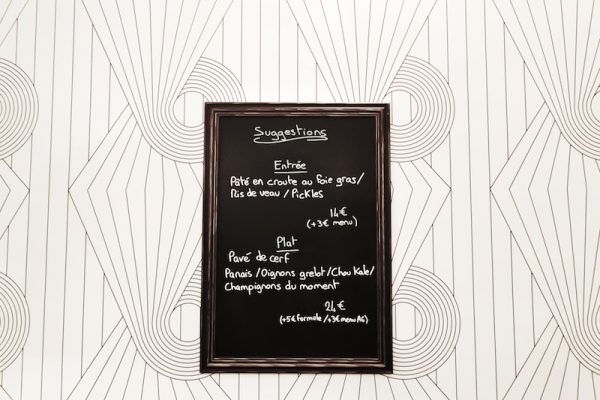 Suggestions
Entrée
Pâté en croute au foie gras/
Ris de veau / Pickles
14€
(+3€ menu)
Plat
Pavé de cerf
Panais / Oignons grelot / Chou Kale/
Champignons du moment
24€
(+5€ formule / +3€ menu AG)